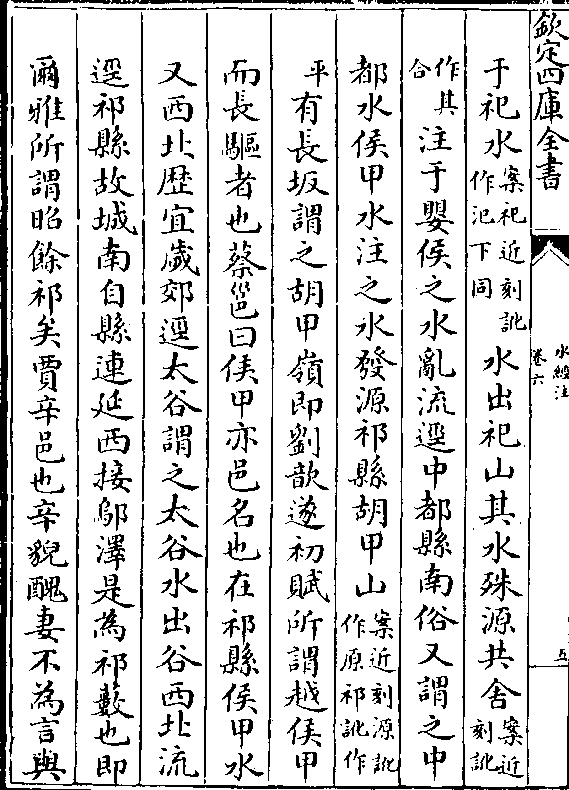 欽定四庫全書
水經注
卷六
五
于祀水案祀近刻訛作汜下同水出祀山其水殊源共舍案近刻訛
作其合注于嬰侯之水亂流逕中都縣南俗又謂之中
都水侯甲水注之水發源祁縣胡甲山案近刻源訛作原祁訛作
平有長坂謂之胡甲嶺即劉歆遂初賦所謂越侯甲
而長驅者也蔡邕曰侯甲亦邑名也在祁縣侯甲水
又西北歷宜歲郊逕太谷謂之太谷水出谷西北流
逕祁縣故城南自縣連延西接鄔澤是為祁藪也即
爾雅所謂昭餘祁矣賈辛邑也辛貌醜妻不為言與